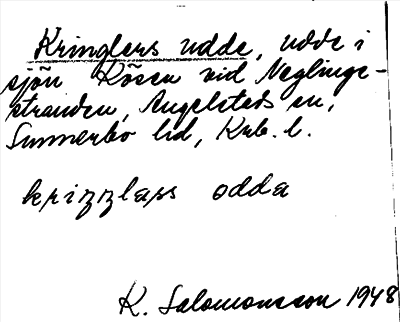 Kringlers udde, udde i
sjön Kösen vid Neglinge-
stranden, Angelstads sn,
Sunnerbo hd, Krb. l.
krizzlass odda
K. Salomonsson 1948